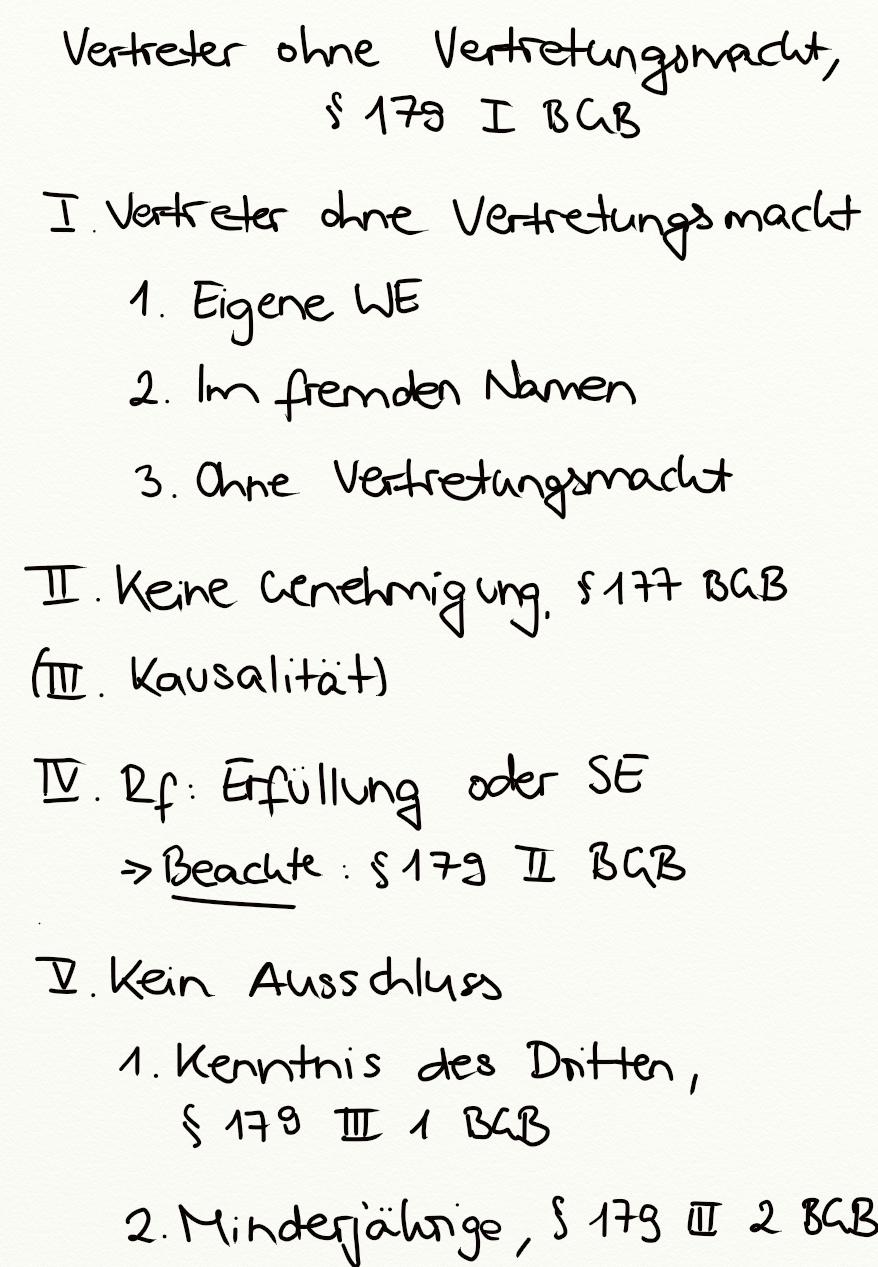 Vertreter ohne Vertretungsmacht,
§ 179 I BGB
I. Vertreter ohne Vertretungsmacht
1. Eigene WE
2. Im fremden Namen
3. Ohne Vertretungsmacht
II. Keine Genehmigung, § 177 BGB
(III. Kausalität)
IV. Rf: Erfüllung oder SE
→ Beachte: § 179 II BGB
V. Kein Ausschluss
1. Kenntnis des Dritten,
§ 179 III 1 BGB
2. Minderjährige, § 179 III 2 BGB